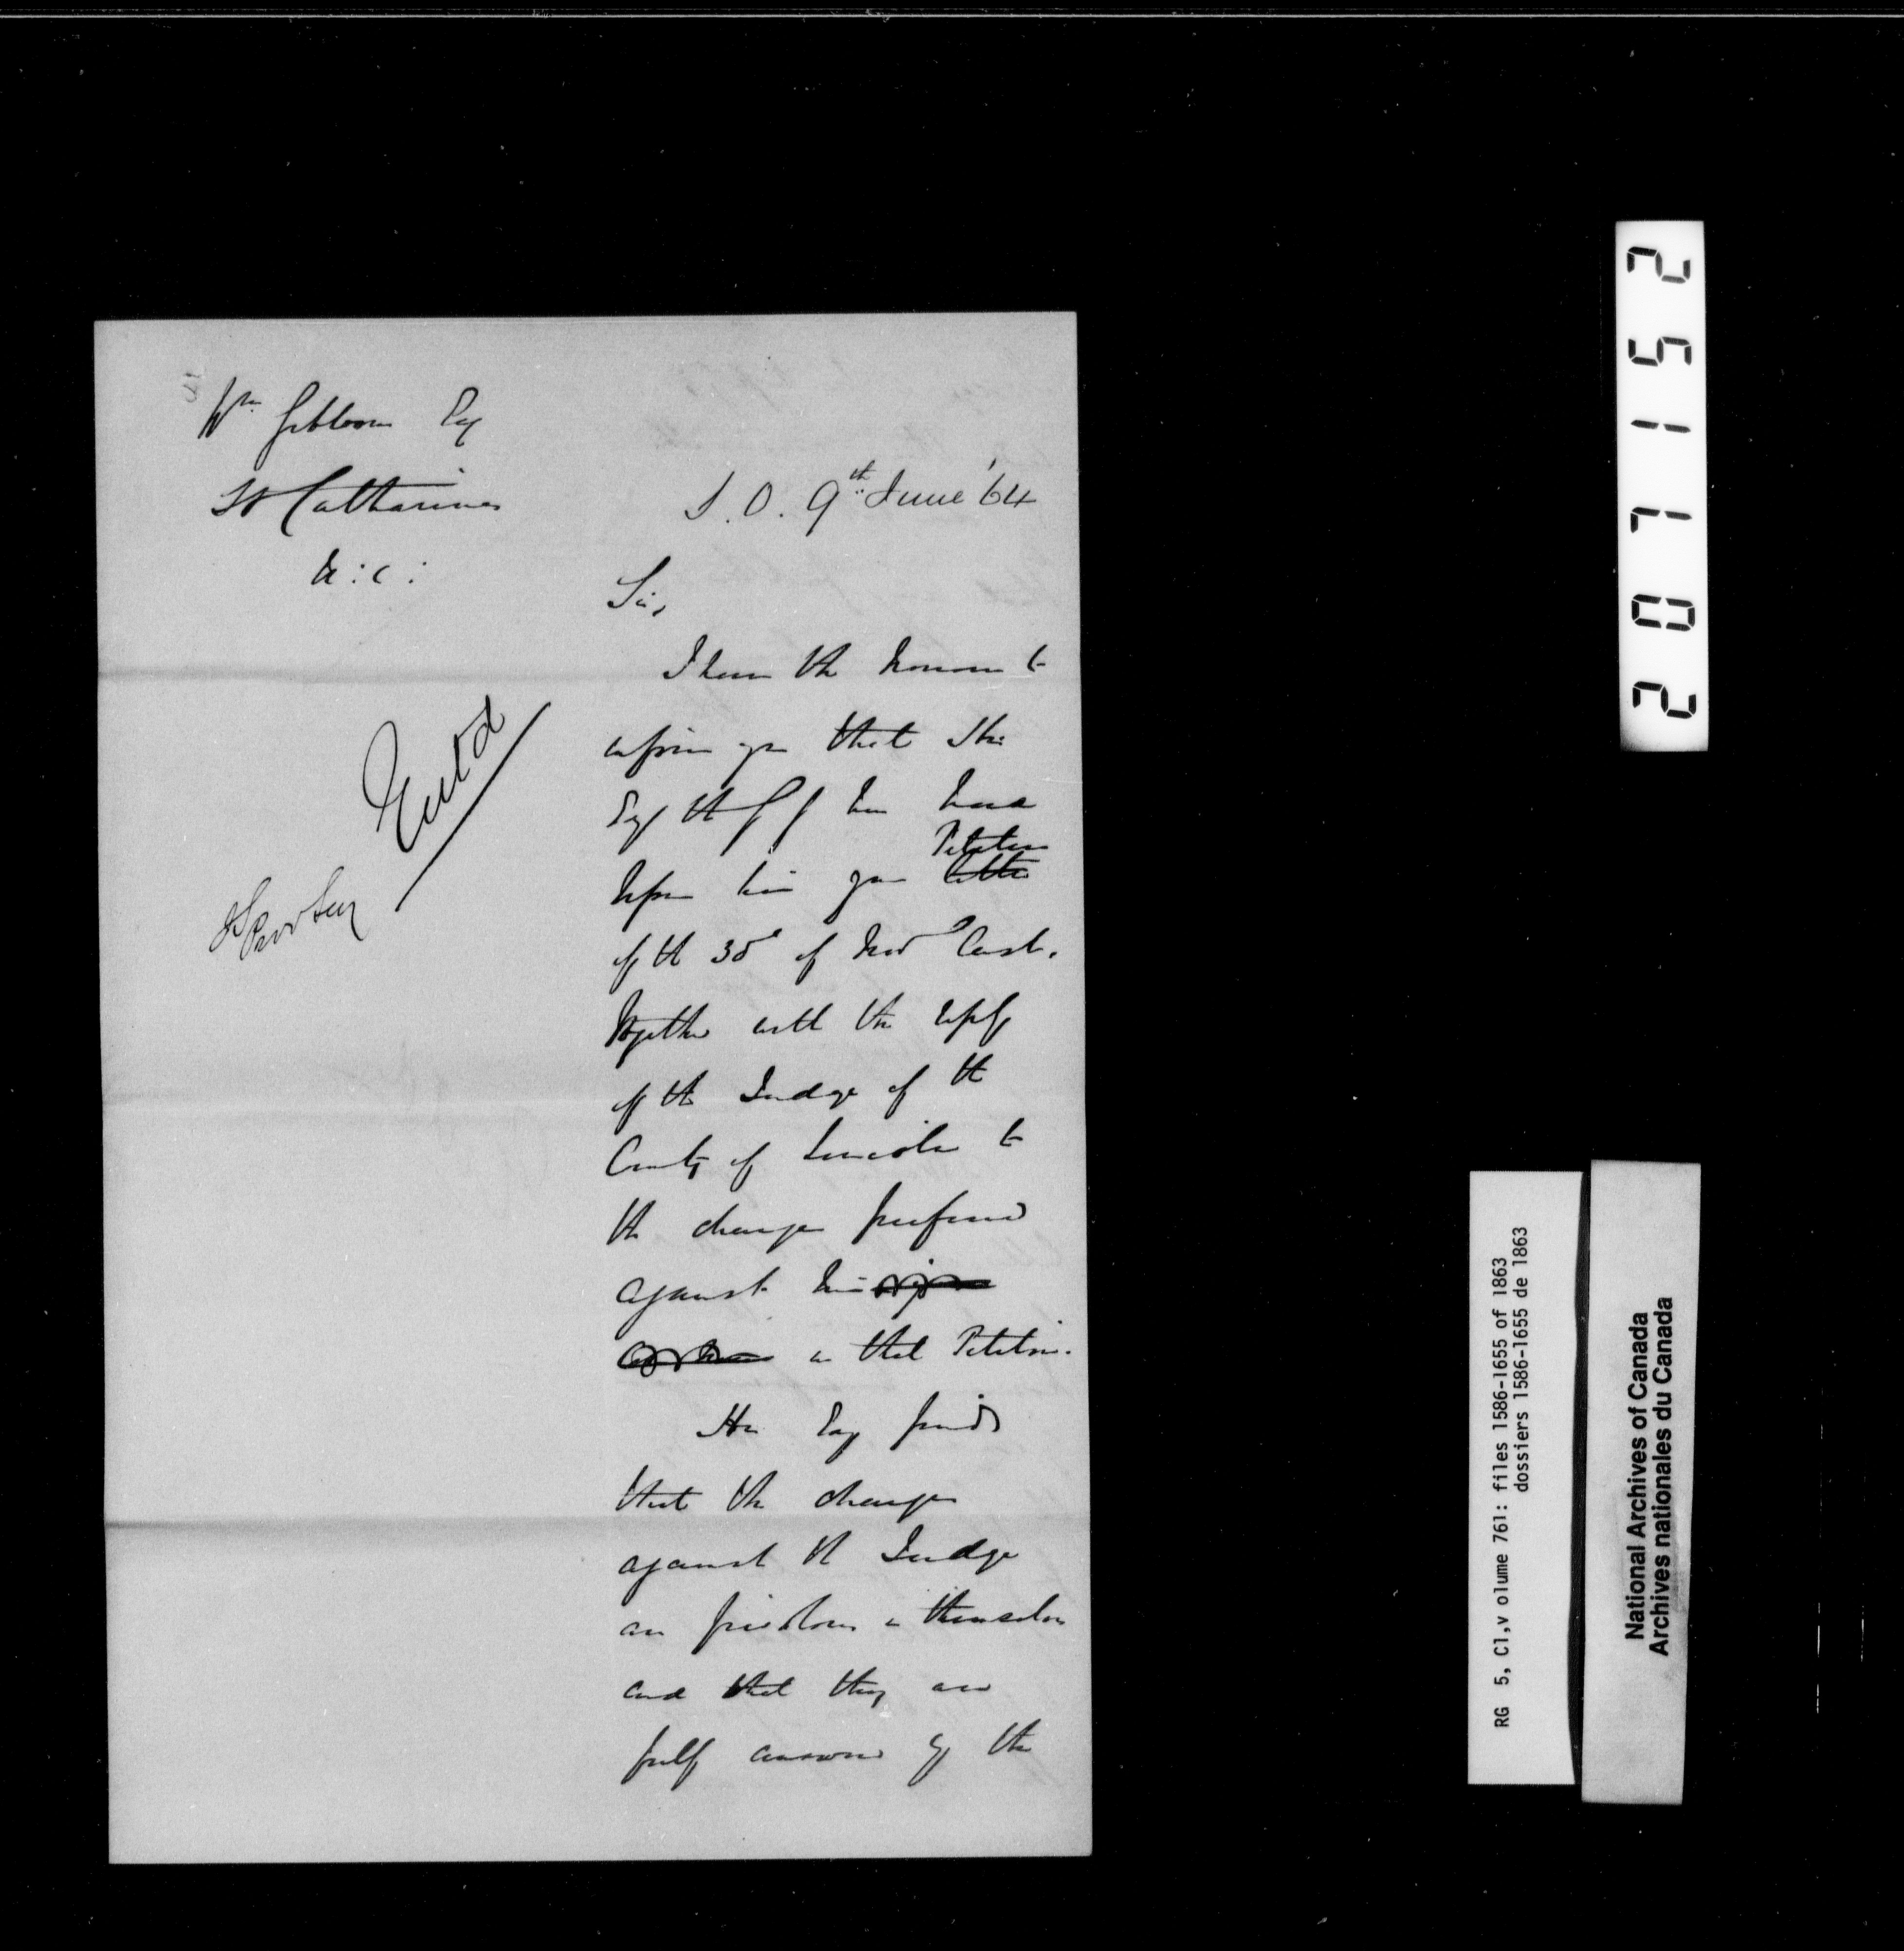 Wm Gibbons Esq
St Catharines
U : C :
S. O. 9th June '64
Sir,
I have the honour to
inform you that His
Exy the G G has had
before him your letter Petition
of the 30 of Novr last,
together with the reply
of the Judge of the
County of Lincoln to
the charges preferred
against him
in that Petition.
His Exy finds
that the charges
against the Judge
are frivolous in themselves
and that they are
fully answered by the
Entd
2 5 1 7 0 2
RG 5, C1,v olume 761: files 1586-1655 of 1863
dossiers 1586-1655 de 1863
National Archives of Canada
Archives nationales du Canada